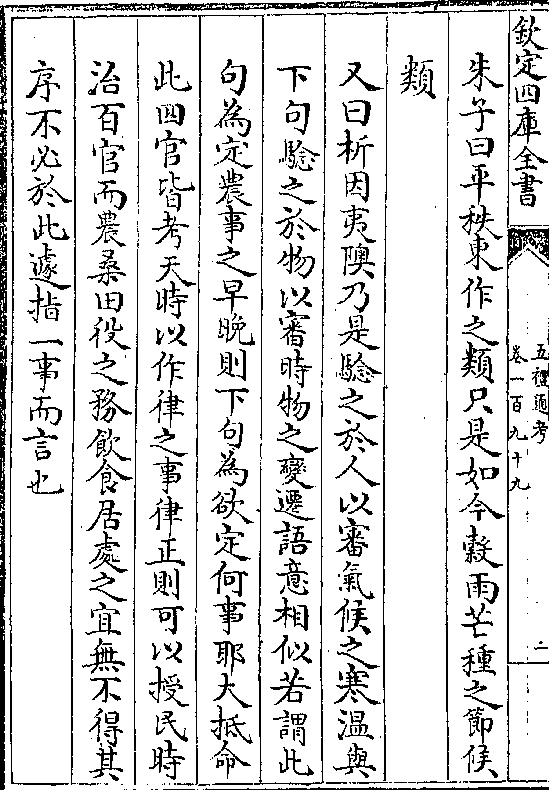 欽定四庫全書
五禮通考
卷一百九十九
二
朱子曰平秩東作之類只是如今穀雨芒種之節候
類
又曰析因夷隩乃是騐之於人以審氣候之寒温與
下句騐之於物以審時物之變遷語意相似若謂此
句為定農事之早晚則下句為欲定何事耶大抵命
此四官皆考天時以作律之事律正則可以授民時
治百官而農桑田役之務飲食居處之宜無不得其
序不必於此遽指一事而言也